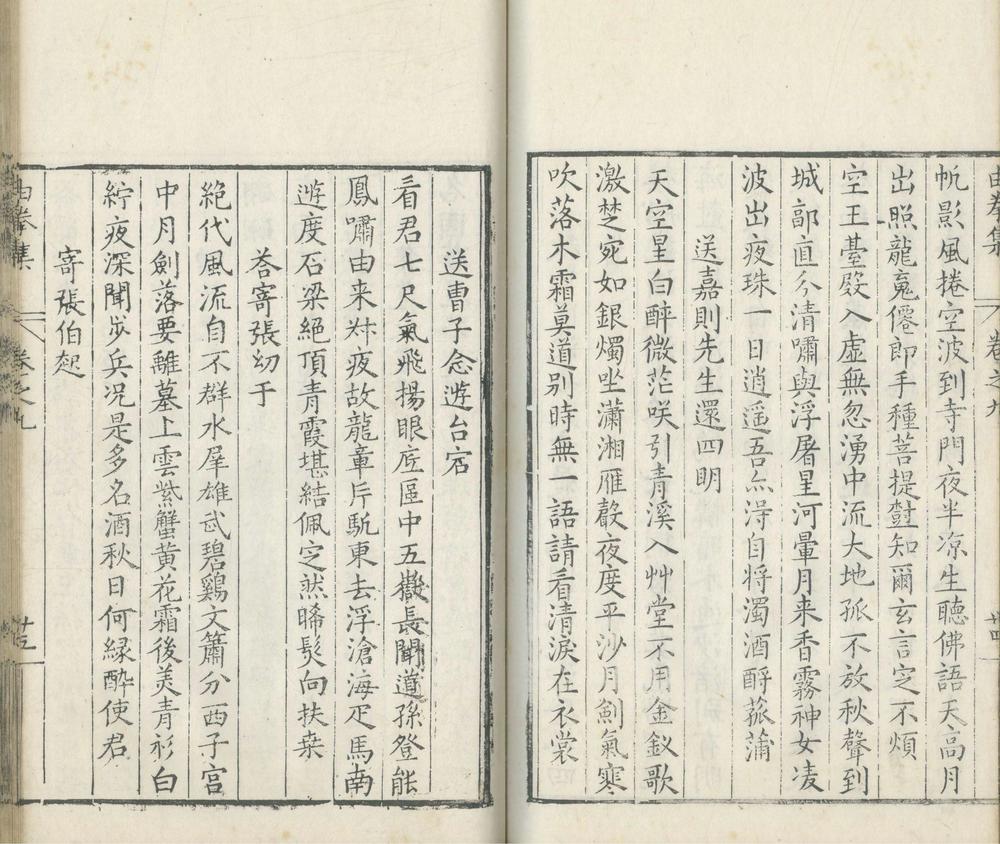 由拳集 卷之九 廿四
帆影風捲空波到寺門夜半凉生聽佛語天高月
出照龍䰟僊郎手種菩提樹知爾玄言定不煩
空王臺殿入虛無忽湧中流大地孤不放秋聲到
城郭直分清嘯與浮屠星河暈月来香霧神女凌
波出夜珠一日逍遥吾亦得自将濁酒酹菰蒲
送嘉則先生還四明
天空星白醉微茫咲引青溪入艸堂不用金釵歌
激楚宛如銀燭坐瀟湘雁聲夜度平沙月劍氣寒
吹落木霜莫道别時無一語請看清淚在衣裳
送曹子念遊台宕
看君七尺氣飛揚眼底區中五嶽長聞道孫登能
鳳嘯由来叔夜故龍章片帆東去浮滄海疋馬南
遊度石梁絕頂青霞堪結佩定然晞髮向扶桒
荅寄張幼于
絕代風流自不群水犀雄武碧鷄文簫分西子宮
中月劍落要離墓上雲紫蟹黄花霜後美青衫白
紵夜深聞步兵况是多名酒秋日何緣醉使君
寄張伯起
由拳集 卷之九 廿五